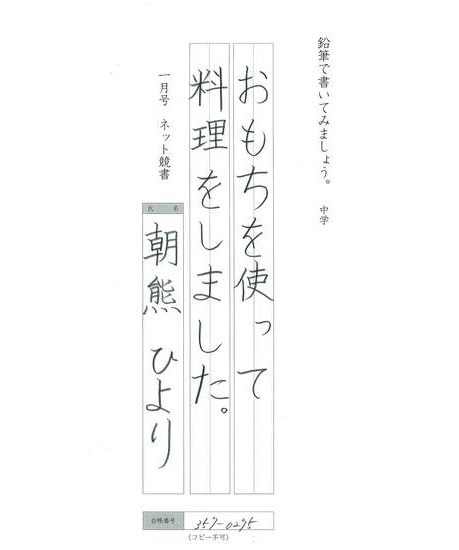 鉛筆で書いてみましょう。 中学
おもちを使って
料理をしました。
一月号 ネット競書
氏名
朝熊 ひより
台帳番号 357-0295
(コピー不可)